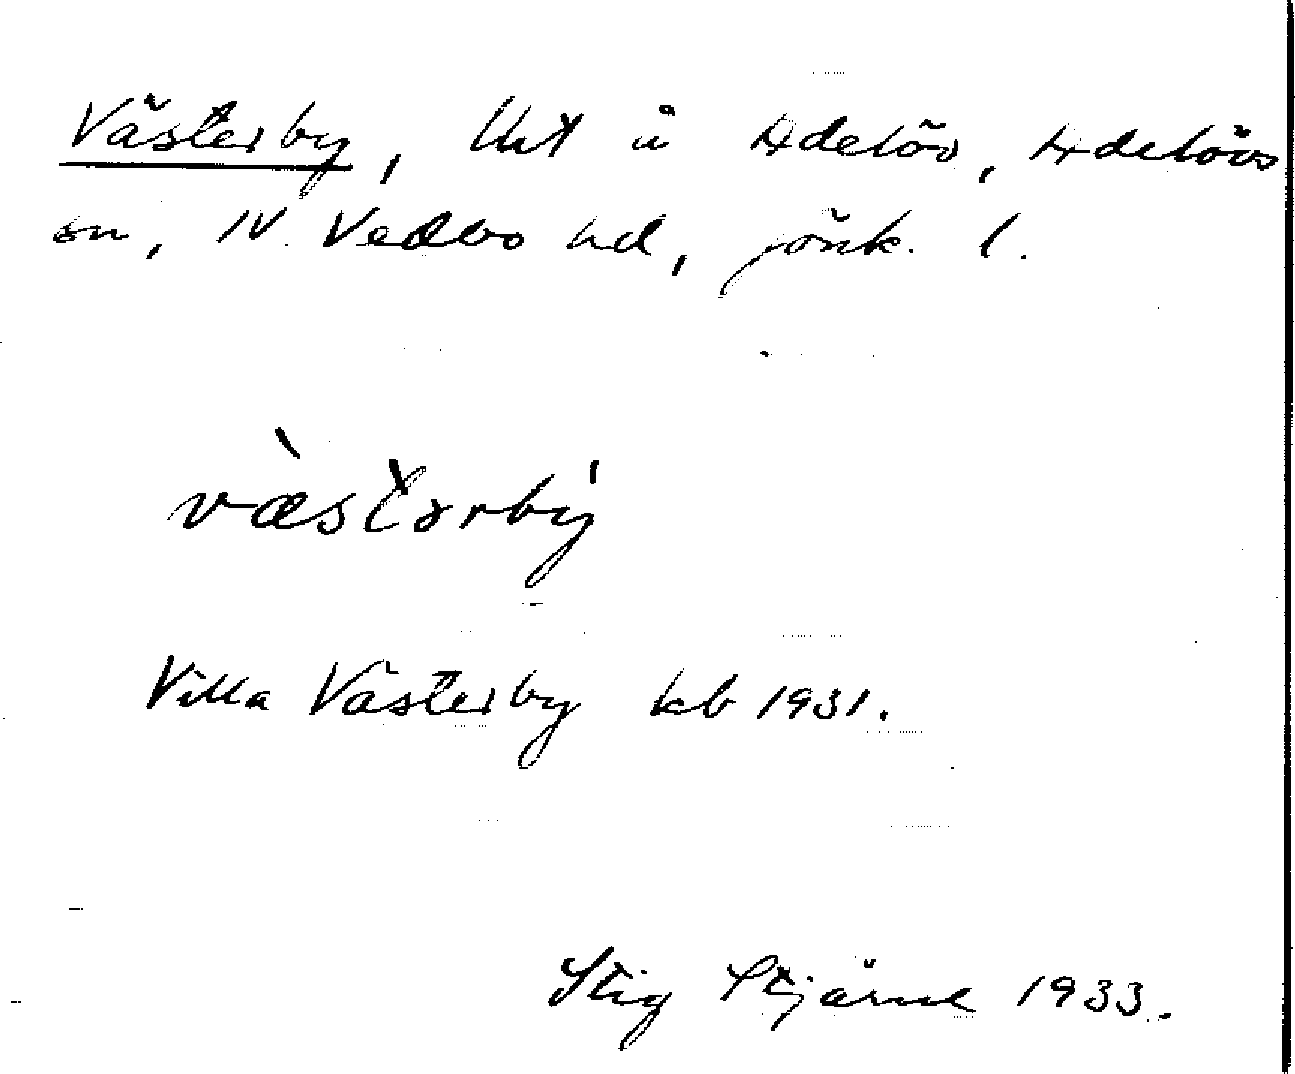 Västerby, lht å Adelöv, Adelövs
sn, N. Vedbo hd, Jönk. l.
væ̀stərbý
Villa Västerby kb 1931.
Stig Stjärne 1933.